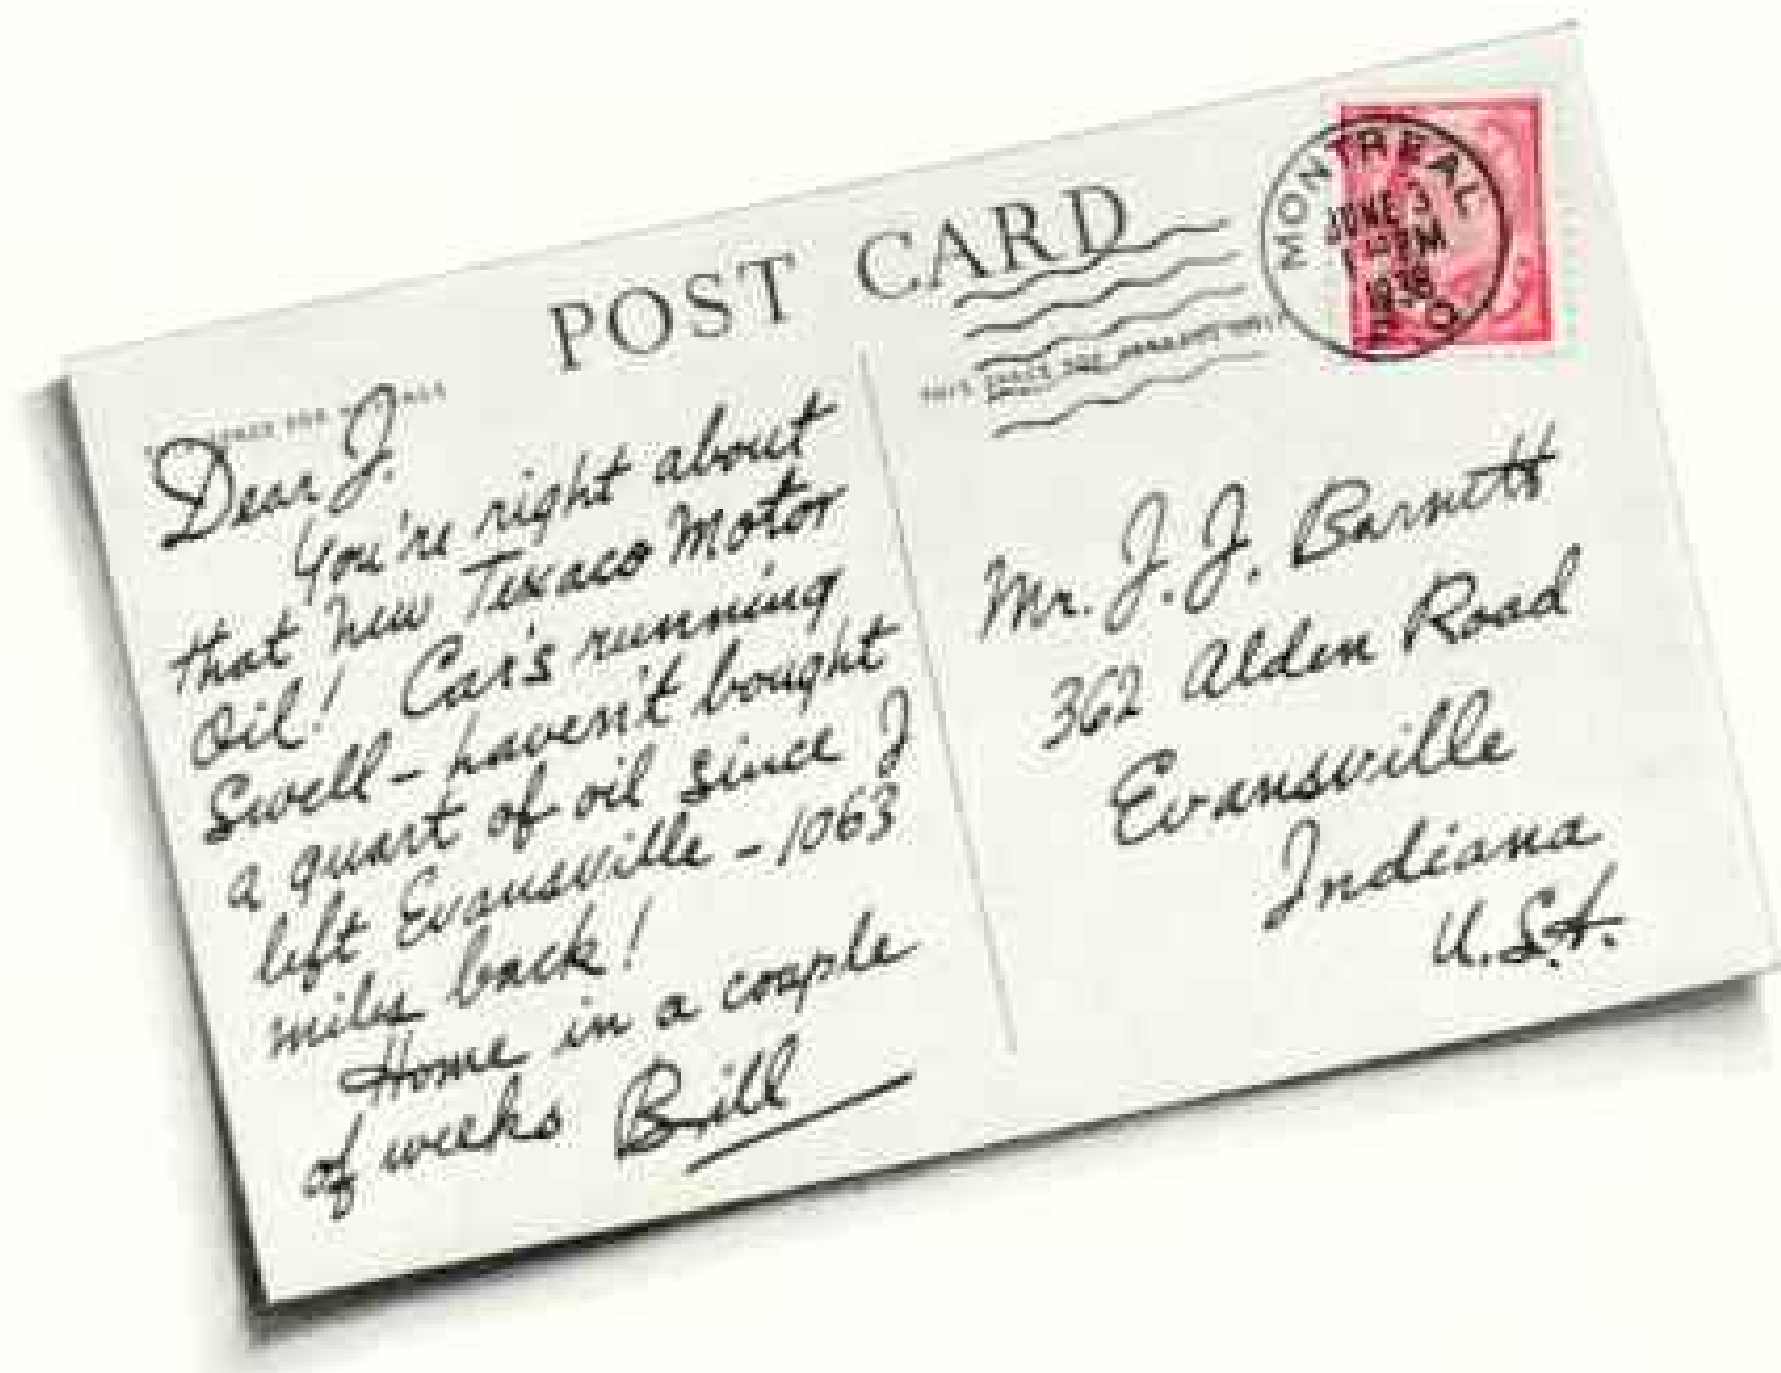 POST CARD
MONTREAL
JUNE 3
PM
P Q
SPACE FOR
THIS SPACE FOR
Dear J.
You're right about
that new Texaco Motor
Oil! Car's running
Swell - haven't bought
a quart of oil since I
left Evansville - 1063
miles back!
Home in a couple
of weeks Bill
Mr. J. J. Barnett
362 Alden Road
Evansville
Indiana
U.S.A.